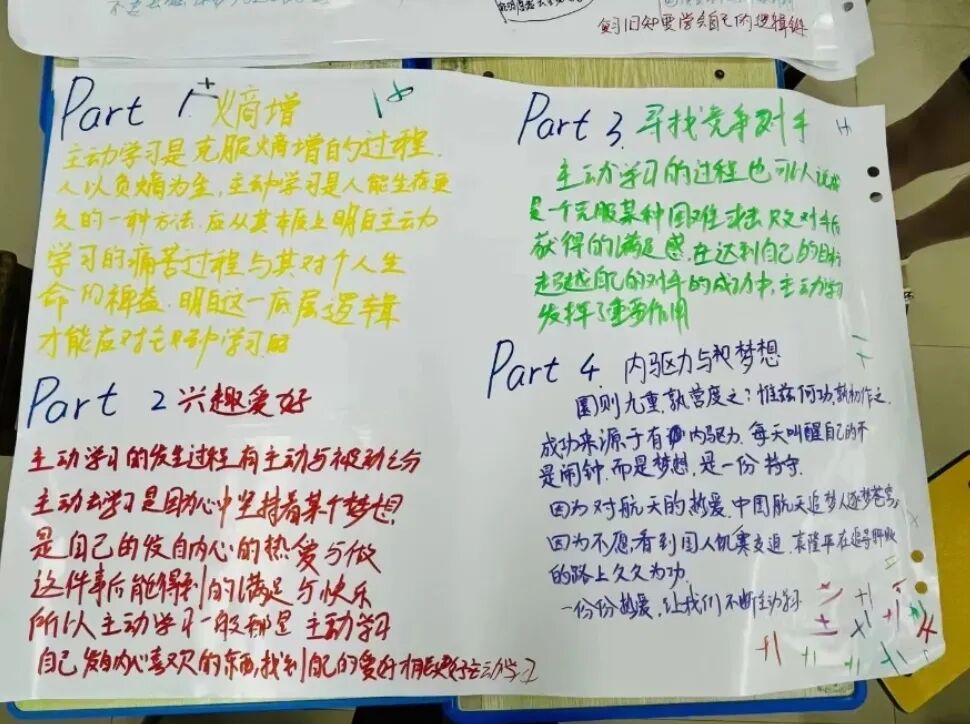 复习旧知要学会自己的逻辑链
Part 1 熵增
主动学习是克服熵增的过程.
人以负熵为生,主动学习是人能生存更
久的一种方法.应从其本质上明白主动
学习的痛苦过程与其对个人生
命的裨益.明白这一底层逻辑
才能应对学习
Part 2 兴趣爱好
主动学习的发生过程有主动与被动之分
主动去学习是因为心中坚持着某个梦想,
是自己的发自内心的热爱与做
这件事后能得到的满足与快乐
所以主动学习一般都是主动学习
自己发自内心喜欢的东西,找到自己的爱好才能更好主动学习
Part 3 寻找竞争对手
主动学习的过程也可以说成
是一个克服某种困难击败对手后
获得的满足感.在达到自己的目标
超越自己的对手的成功中,主动学习
发挥了重要作用
Part 4. 内驱力与梦想
圜则九重,孰营度之?惟兹何功,孰初作之.
成功来源于有内驱力.每天叫醒自己的不
是闹钟.而是梦想.是一份持守.
因为对航天的热爱.中国航天追梦人逐梦苍穹,
因为不愿看到国人饥寒交迫.袁隆平在追寻
的路上久久为功.
一份份热爱,让我们不断主动学习